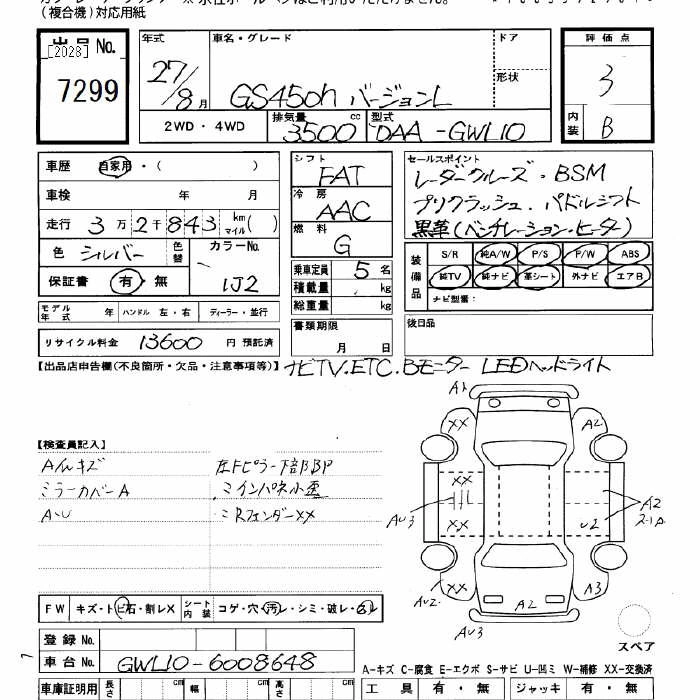 (複合機)対応用紙
出品No.
[2028]
7299
年式
27/8月
車名・グレード
GS450h バージョンL
ドア
形状
評価点
3
内装
B
2WD・4WD
排気量 3500 cc
型式 DAA-GWL10
車歴 自家用・( )
車検 年 月
走行 3万2千843 km マイル( )
色 シルバー 色替
カラーNo. 1J2
保証書 有・無
シフト FAT
冷房 AAC
燃料 G
乗車定員 5 名
積載量 kg
総重量 kg
セールスポイント
レーダークルーズ・BSM
プリクラッシュ・パドルシフト
黒革(ベンチレーション・ヒーター)
装備品
S/R 純A/W P/S P/W ABS
純TV 純ナビ 革シート 外ナビ エアB
ナビ型番:
モデル年式 年 ハンドル 左・右 ディーラー・並行
リサイクル料金 13600 円 預託済
書類期限 月 日
後日品
【出品店申告欄(不良箇所・欠品・注意事項等)】 ナビTV.ETC.Bモニター LEDヘッドライト
【検査員記入】
A/Wキズ
ミラーカバーA
A・U
左Fピラー下部BP
ミインパネ小歪
ミRフェンダーXX
A1
XX
A2
XX
XX
AU3
U2
A2
XX
AU2
A2
A3
AU3
スペア
FW キズ・トビ石・割レX
シート内装 コゲ・穴・汚レ・シミ・破レ・
登録No.
車台No. GWL10-6008648
車庫証明用 長さ cm 幅 cm 高さ cm
A-キズ C-腐食 E-エクボ S-サビ U-凹ミ W-補修 XX-交換済
工具 有・無 ジャッキ 有・無